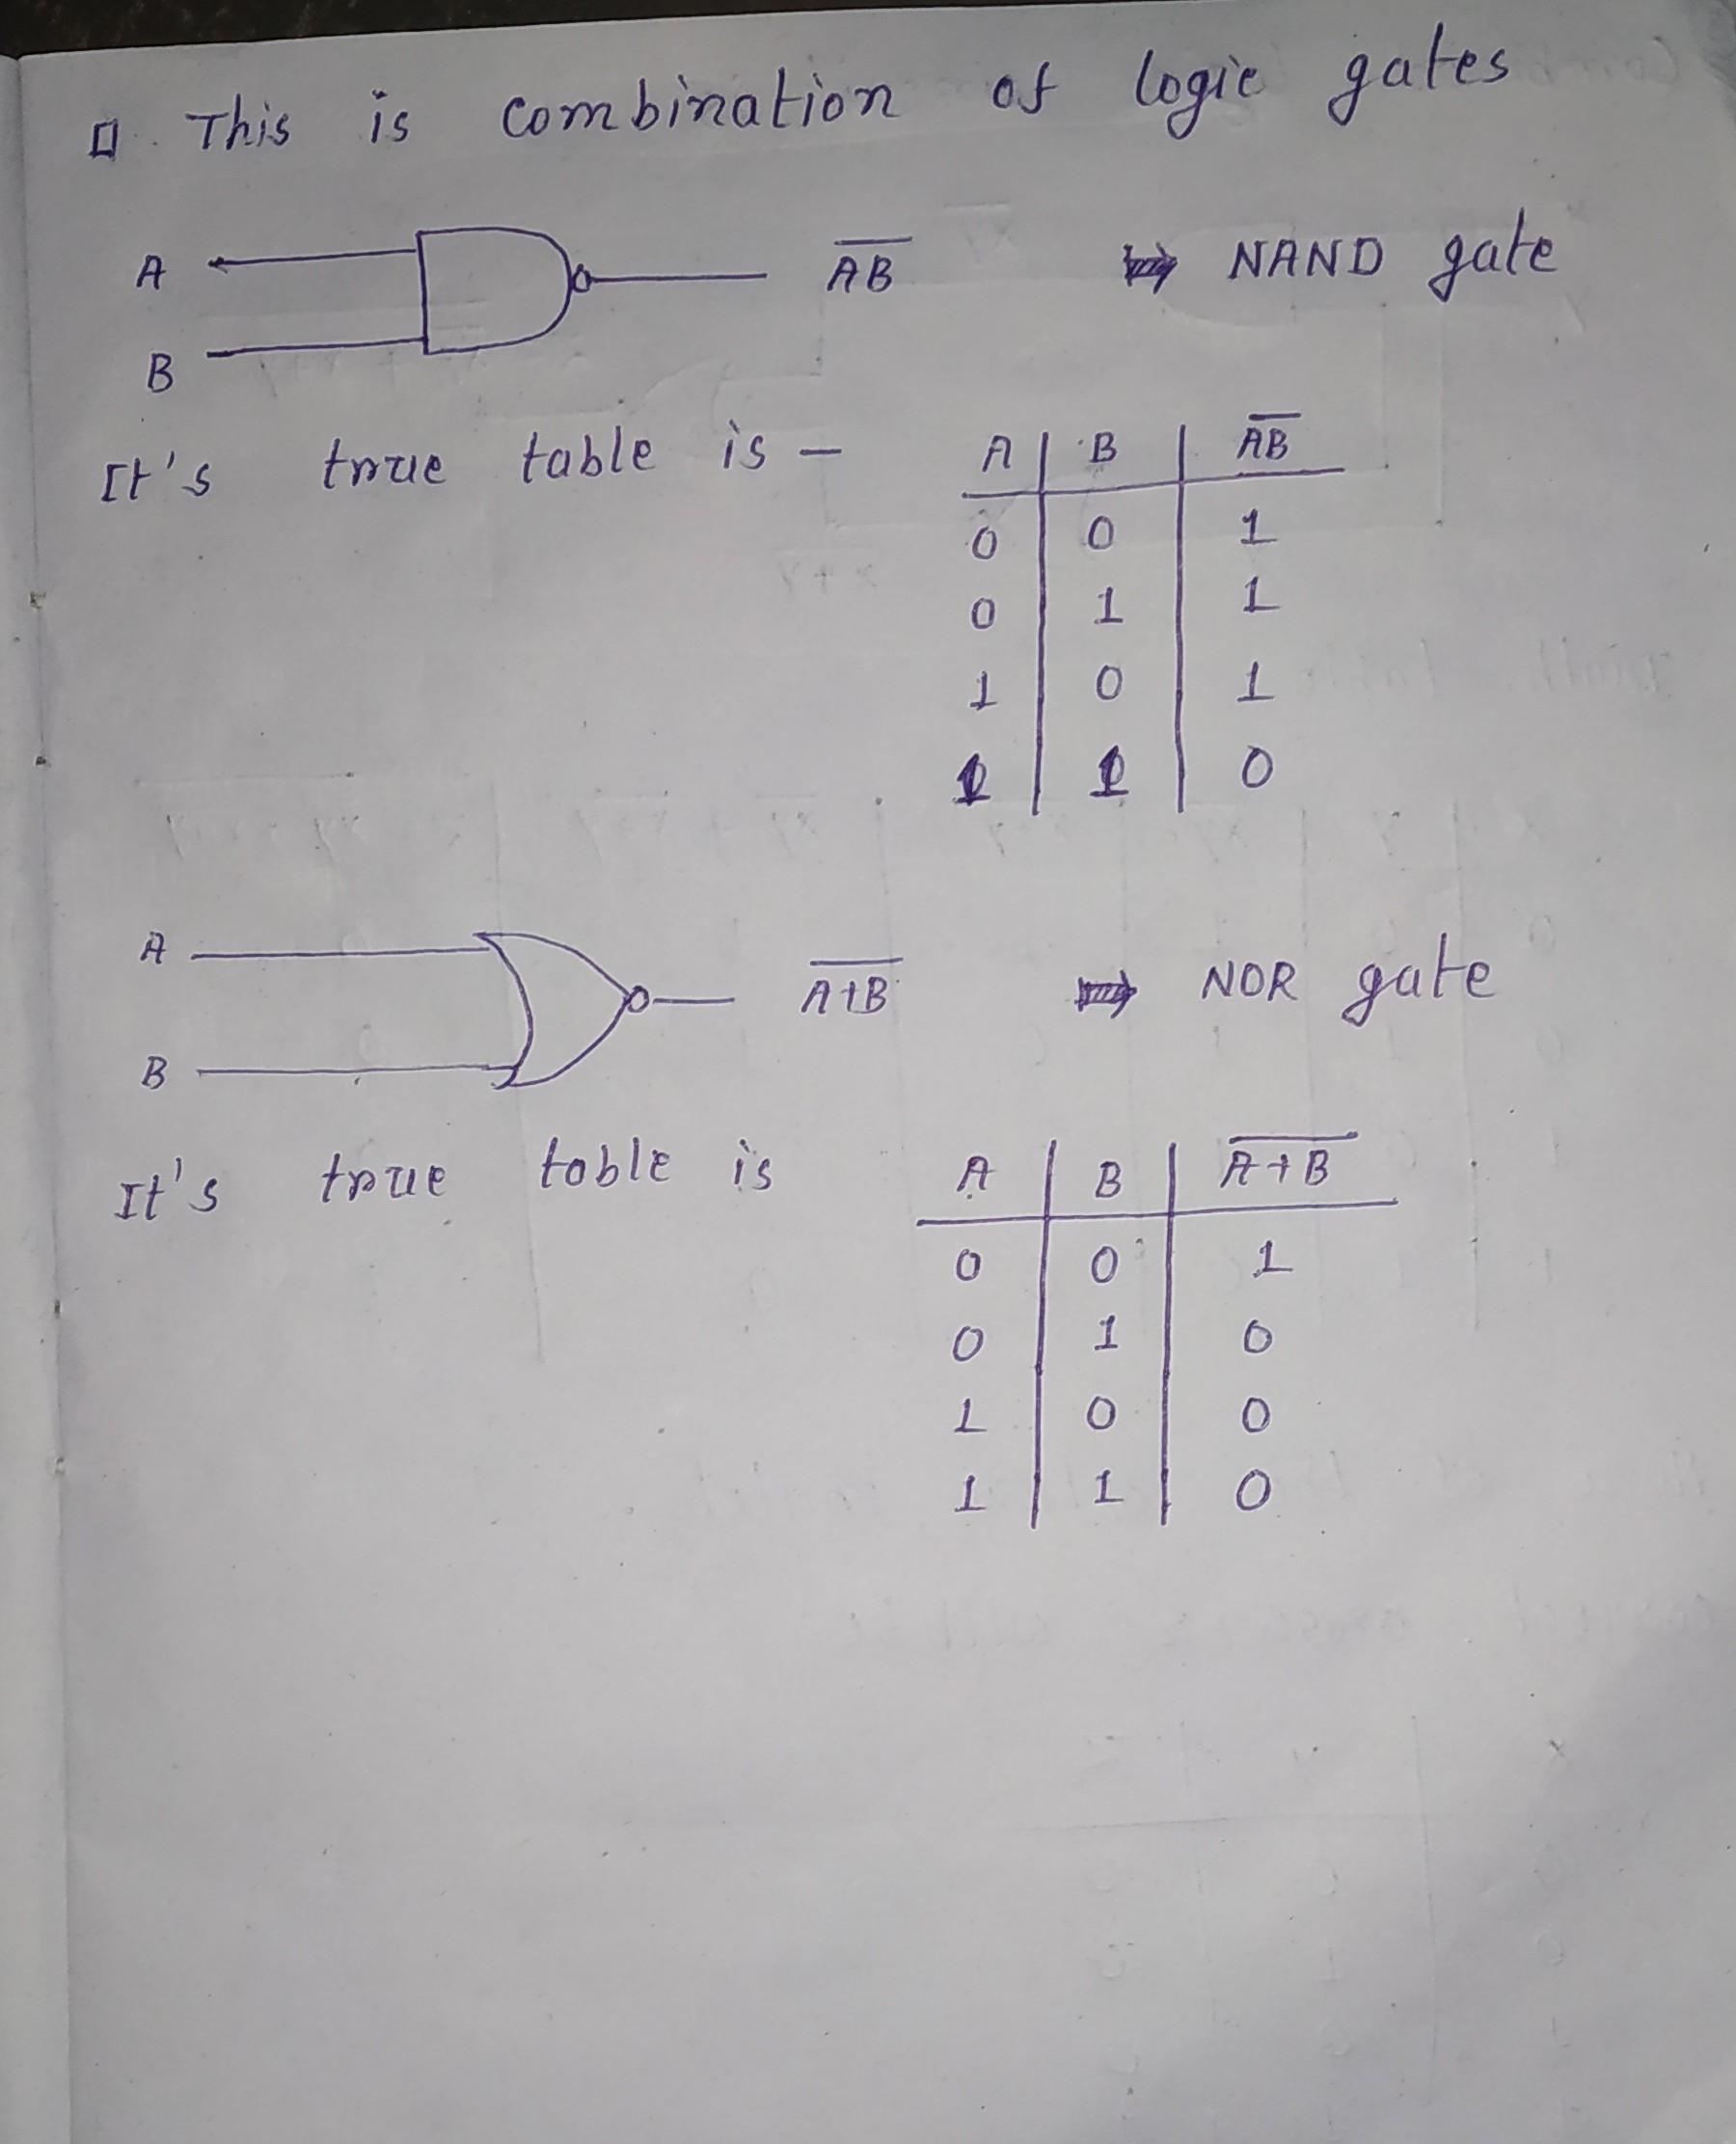 This is combination of logic gates
A
B
A̅B̅ NAND gate
It's true table is –
A B A̅B̅
0 0 1
0 1 1
1 0 1
1 1 0
A
B
A̅+̅B̅ NOR gate
It's true toble is
A B A̅+̅B̅
0 0 1
0 1 0
1 0 0
1 1 0